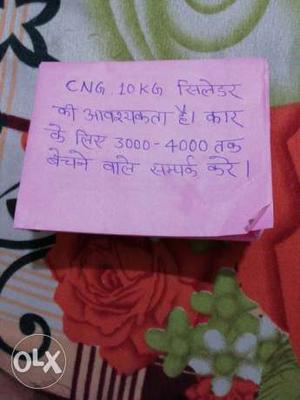 CNG 10KG सिलेडर
की आवश्यकता है। कार
के लिए 3000-4000 तक
बेचने वाले सम्पर्क करे।
OLX